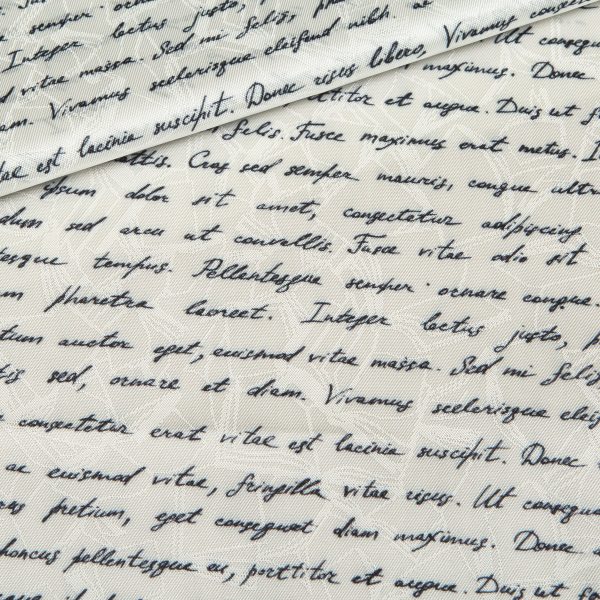 semper. ornare
Integer lectus justo,
vitae massa. Sed mi felis,
Vivamus scelerisque eleifend nibh. ac
est lacinia suscipit. Donec risus libero, Vivamus
Ut
maximus. Donec
porttitor et augue. Duis ut
felis. Fusce maximus erat metus.
Cras sed semper mauris, congue
ipsum dolor sit amet, consectetur adipiscing
sed arcu ut convallis. Fusce vitae odio sit
tempus. Pellentesque semper. ornare congue.
pharetra laoreet. Integer lectus justo,
auctor eget, euismod vitae massa. Sed mi felis
sed, ornare et diam. Vivamus scelerisque
consectetur erat vitae est lacinia suscipit. Donec
ac euismod vitae, fringilla vitae risus. Ut
pretium, eget consequat diam maximus. Donec
pellentesque eu, porttitor et augue. Duis ut